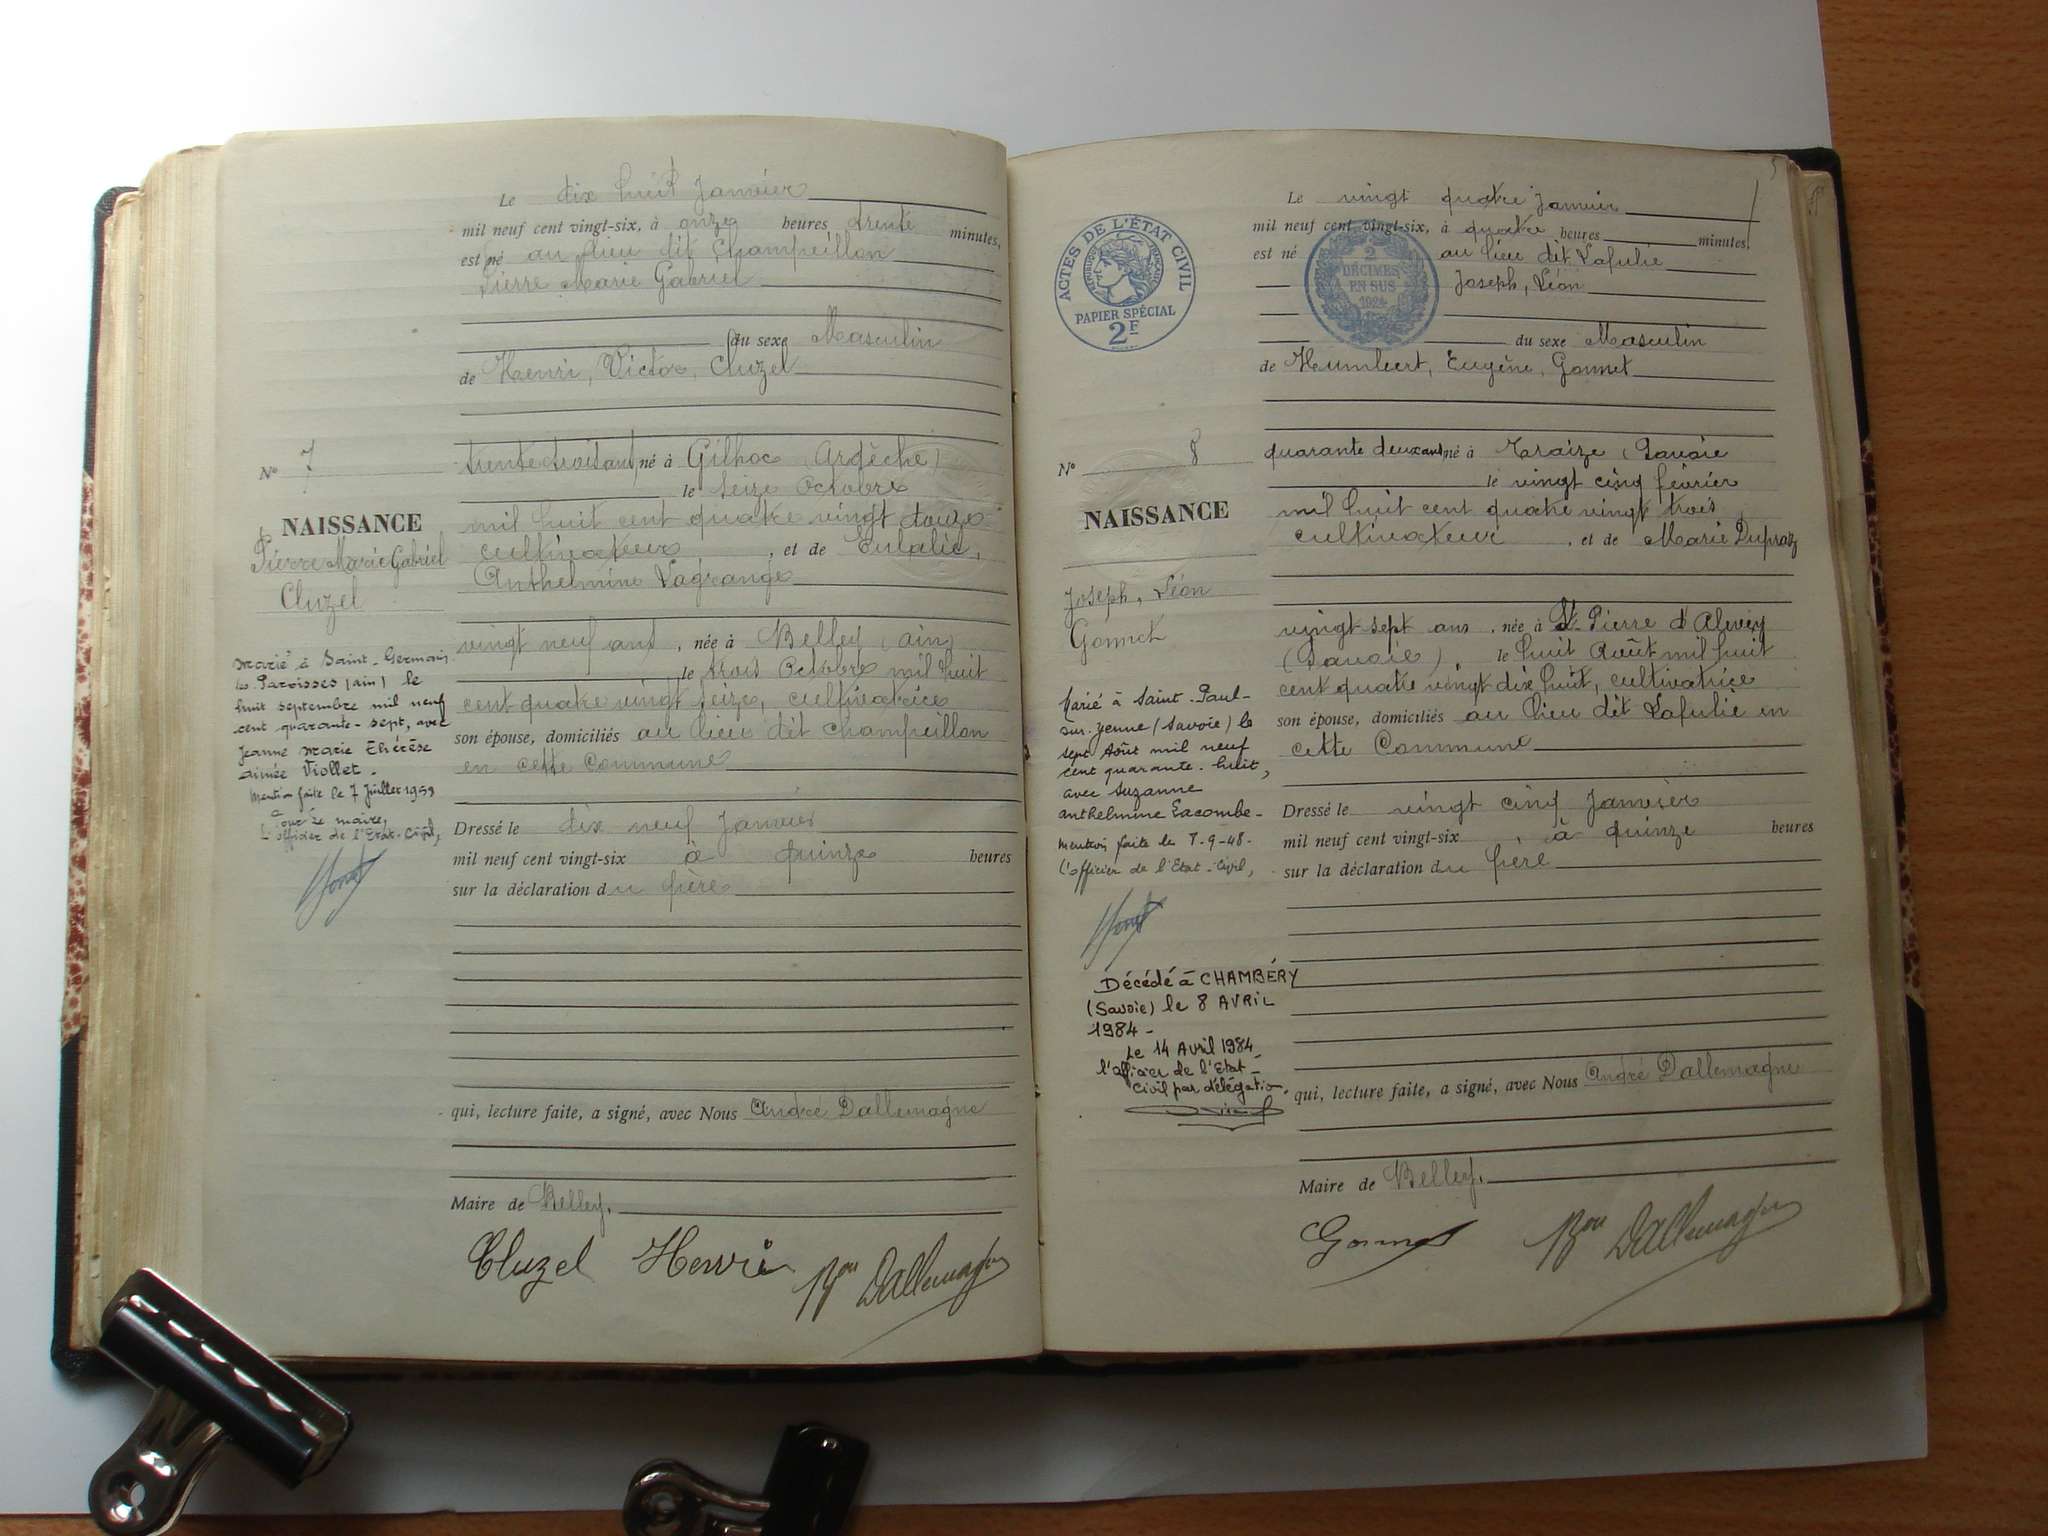 Le dix huit Janvier
mil neuf cent vingt-six, à onze heures trente minutes,
est né au lieu dit Champeillon
Pierre Marie Gabriel
du sexe Masculin
de Henri, Victor, Cluzel
trente trois ans, né à Gilhoc (Ardèche)
le seize Octobre
mil huit cent quatre vingt douze
cultivateur, et de Eulalie,
Anthelmine Lagrange
vingt neuf ans, née à Belley (ain)
le trois Octobre mil huit
cent quatre vingt seize, cultivatrice
son épouse, domiciliés au lieu dit Champeillon
en cette Commune
Dressé le dix neuf Janvier
mil neuf cent vingt-six à quinze heures
sur la déclaration du père
qui, lecture faite, a signé, avec Nous André Dallemagne
Maire de Belley.
Cluzel Henri Bon Dallemagne
N° 7
NAISSANCE
Pierre Marie Gabriel
Cluzel
Marié à Saint-Germain
les Paroisses (ain) le
huit septembre mil neuf
cent quarante-sept, avec
Jeanne Marie Thérèse
aimée Viollet.
Mention faite le 7 Juillet 1959
Pour Le maire,
L'officier de l'Etat-Civil,
5
Le vingt quatre Janvier
mil neuf cent vingt-six, à quatre heures minutes,
est né au lieu dit Lafulie
Joseph, Léon
du sexe Masculin
de Humbert, Eugène, Gonnet
quarante deux ans né à Traize (Savoie
le vingt cinq février
mil huit cent quatre vingt trois
cultivateur, et de Marie Dupraz
vingt sept ans, née à St Pierre d'Alvey
(Savoie), le huit Août mil huit
cent quatre vingt dix huit, cultivatrice
son épouse, domiciliés au lieu dit Lafulie en
cette Commune
Dressé le vingt cinq Janvier
mil neuf cent vingt-six, à quinze heures
sur la déclaration du père
qui, lecture faite, a signé, avec Nous André Dallemagne
Maire de Belley.
Gonnet Bon Dallemagne
ACTES DE L'ÉTAT CIVIL
RÉPUBLIQUE FRANÇAISE
PAPIER SPÉCIAL
2F
2
DÉCIMES
EN SUS
1924
N° 8
NAISSANCE
Joseph, Léon
Gonnet
Marié à Saint-Paul-
sur-Yenne (Savoie) le
sept Août mil neuf
cent quarante-huit,
avec Suzanne
anthelmine Lacombe-
Mention faite le 8-9-48-
L'officier de l'Etat-Civil,
Décédé à CHAMBÉRY
(Savoie) le 8 AVRIL
1984-
Le 14 Avril 1984
l'officier de l'Etat-
Civil par délégation.